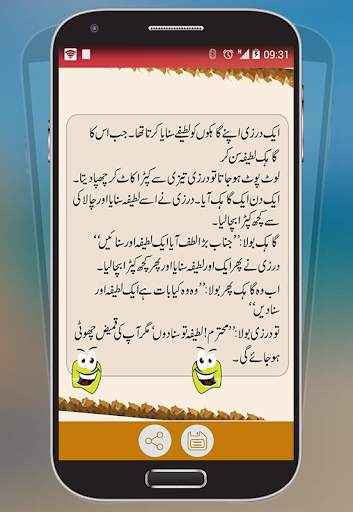 09:31
ایک درزی اپنے گاہکوں کو لطیفے سنایا کرتا تھا۔ جب اس کا
گاہک لطیفہ سن کر
لوٹ پوٹ ہو جاتا تو درزی تیزی سے کپڑا کاٹ کر چھپا دیتا۔
ایک دن ایک گاہک آیا۔ درزی نے اسے لطیفہ سنایا اور چالاکی
سے کچھ کپڑا بچا لیا۔
گاہک بولا:’’جناب بڑا لطف آیا ایک لطیفہ اور سنائیں‘‘
درزی نے پھر ایک اور لطیفہ سنایا اور پھر کچھ کپڑا بچا لیا۔
اب وہ گاہک پھر بولا:’’وہ وہ کیا بات ہے ایک لطیفہ اور
سنا دیں‘‘
تو درزی بولا:’’محترم! لطیفہ تو سنا دوں‘ مگر آپ کی قمیض چھوٹی
ہو جائے گی۔